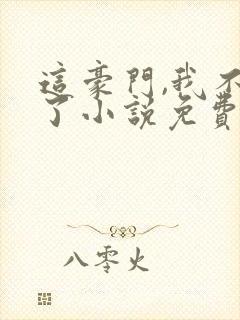 這豪門,我不
了小說免費
八零火